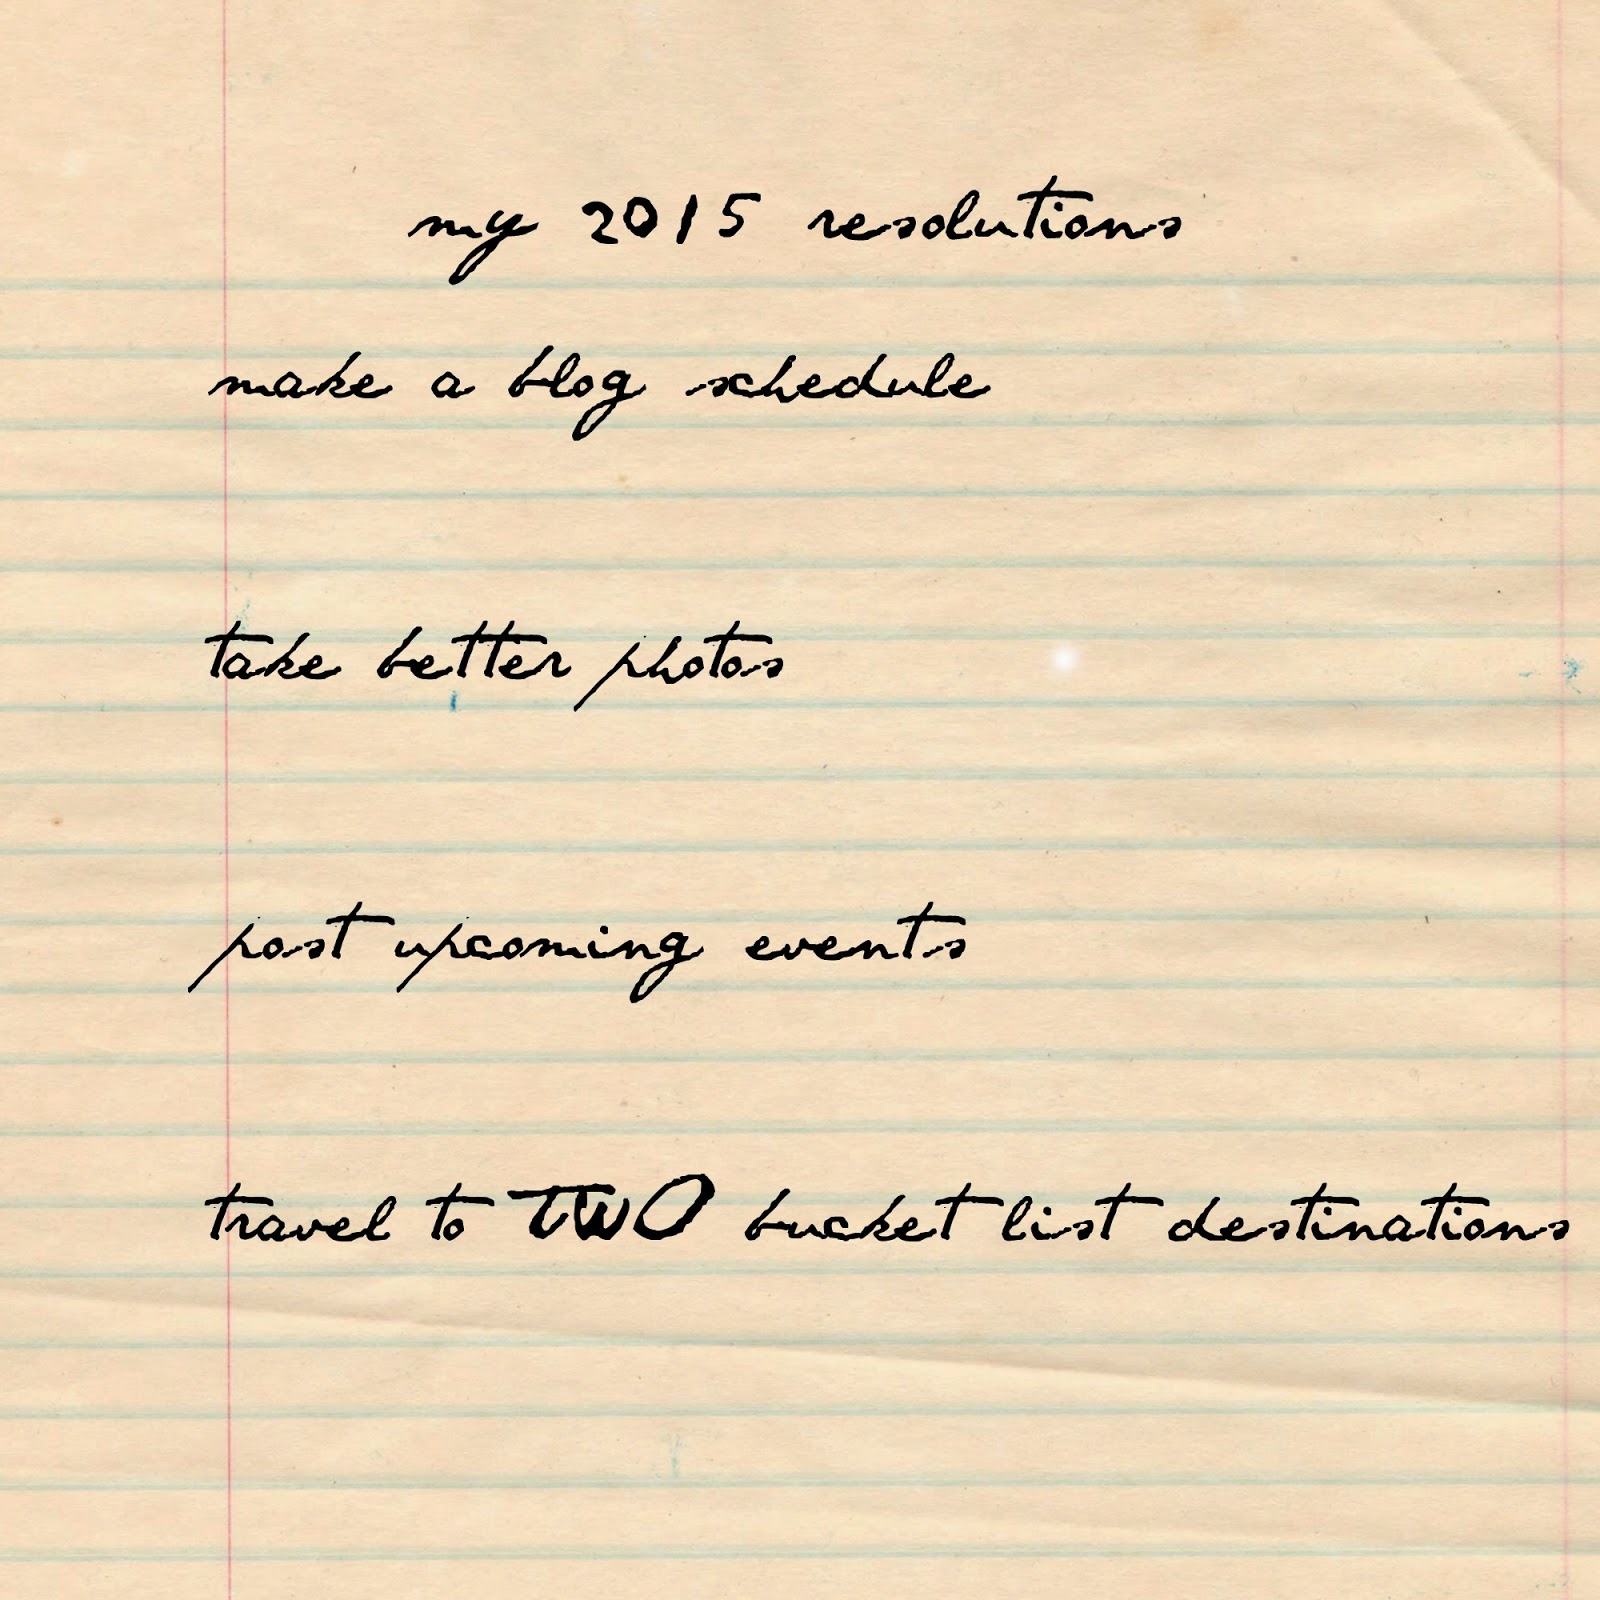 my 2015 resolutions
make a blog schedule
take better photos
post upcoming events
travel to TWO bucket list destinations